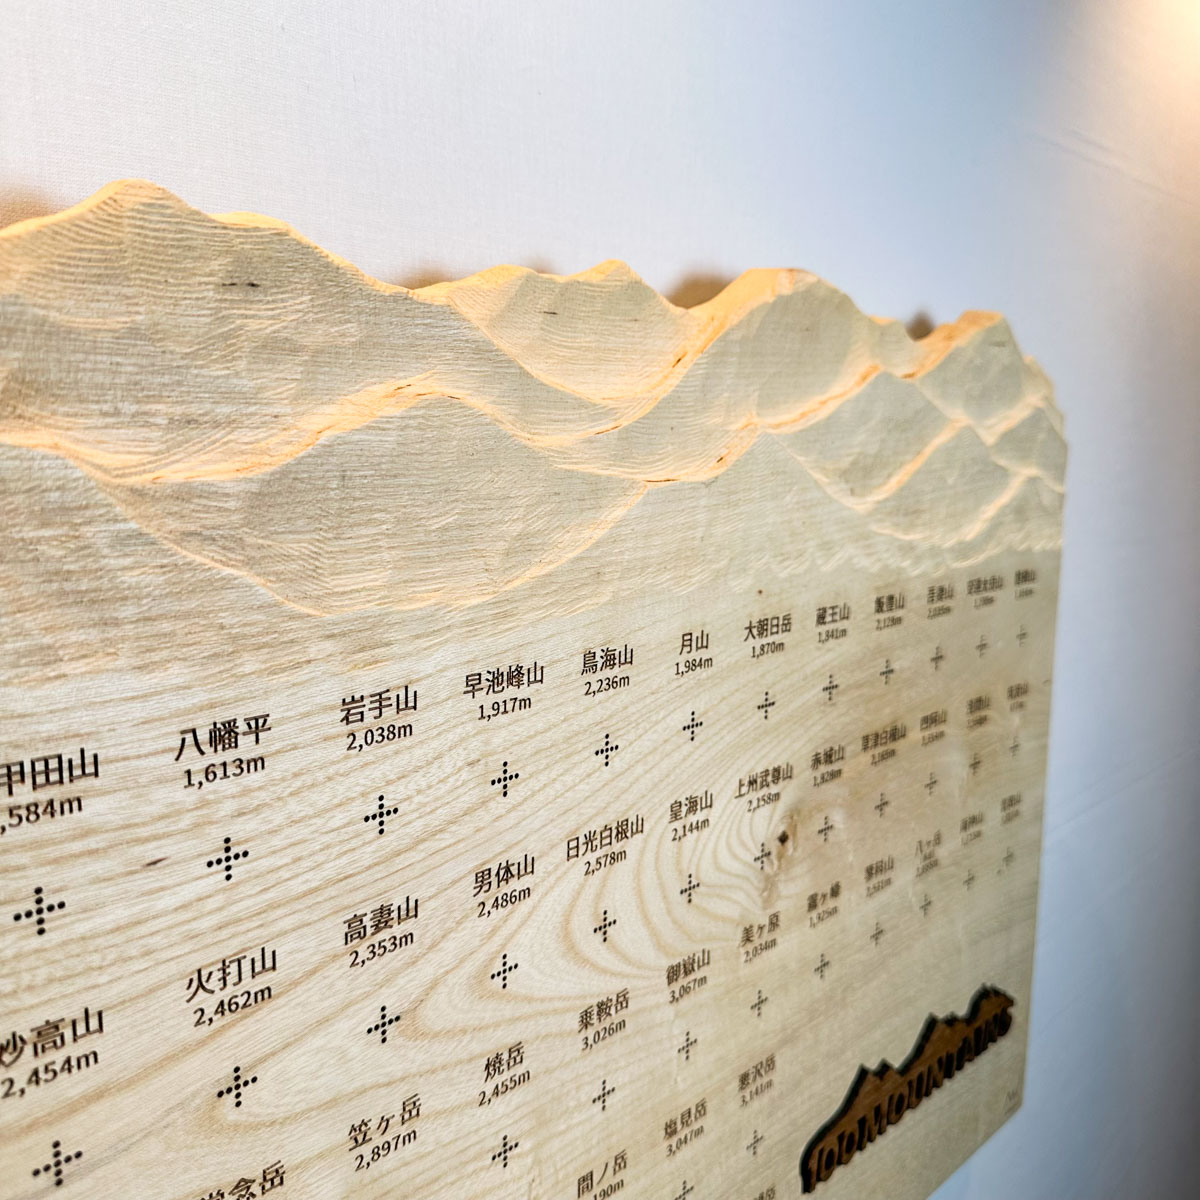 甲田山
,584m
八幡平
1,613m
岩手山
2,038m
早池峰山
1,917m
鳥海山
2,236m
月山
1,984m
大朝日岳
1,870m
蔵王山
1,841m
飯豊山
2,128m
妙高山
2,454m
火打山
2,462m
高妻山
2,353m
男体山
2,486m
日光白根山
2,578m
皇海山
2,144m
上州武尊山
2,158m
赤城山
1,828m
草津白根山
常念岳
笠ヶ岳
2,897m
焼岳
2,455m
乗鞍岳
3,026m
御嶽山
3,067m
美ヶ原
2,034m
霧ヶ峰
1,925m
蓼科山
八ヶ岳
間ノ岳
190m
塩見岳
3,047m
悪沢岳
3,141m
100MOUNTAINS